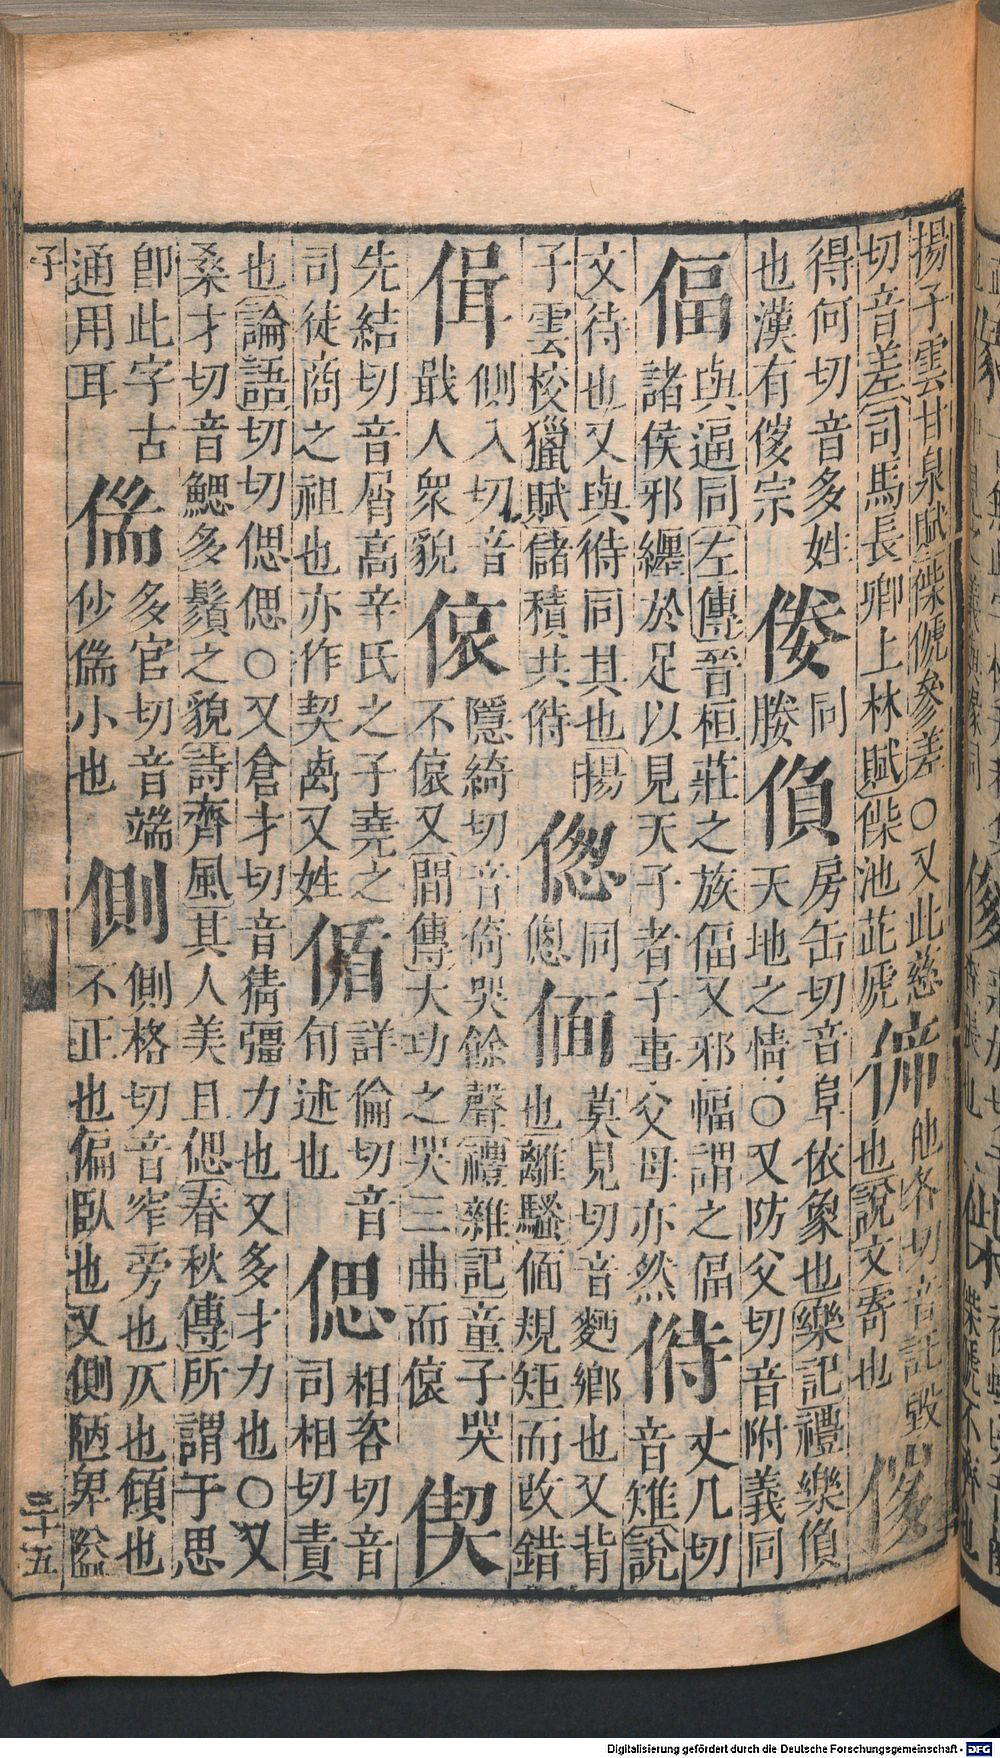 揚子雲甘泉賦傑傂參差○又此慈
切音差司馬長卿上林賦傑池茈虒
㑰
他各切音託毀
也說文寄也
侈
得何切音多姓
也漢有侈宗
倰
同
勝
偩
房缶切音阜依象也樂記禮樂偩
天地之情○又防父切音附義同
偪
與逼同左傳晉桓莊之族偪又邪幅謂之偪
諸侯邪纒於足以見天子者子事父母亦然
偫
丈几切
音雉說
文待也又與待同其也揚
子雲校獵賦儲積共偫
偬
同
傯
偭
莫見切音麪鄉也又背
也離騷偭規矩而改錯
偮
側入切音
戢人衆貌
偯
隱綺切音倚哭餘聲禮雜記童子哭
不偯又間傳大功之哭三曲而偯
偰
先結切音屑高辛氏之子堯之
司徒商之祖也亦作契卨又姓
偱
詳倫切音
旬述也
偲
相咨切音
司相切責
也論語切切偲偲○又倉才切音猜彊力也又多才力也○又
桑才切音鰓多鬚之貌詩齊風其人美且偲春秋傳所謂于思
卽此字古
通用耳
偳
多官切音端
仯偳小也
側
側格切音窄旁也仄也傾也
不正也偏臥也又側陋卑隘
子
三十五
Digitalisierung gefördert durch die Deutsche Forschungsgemeinschaft - DFG